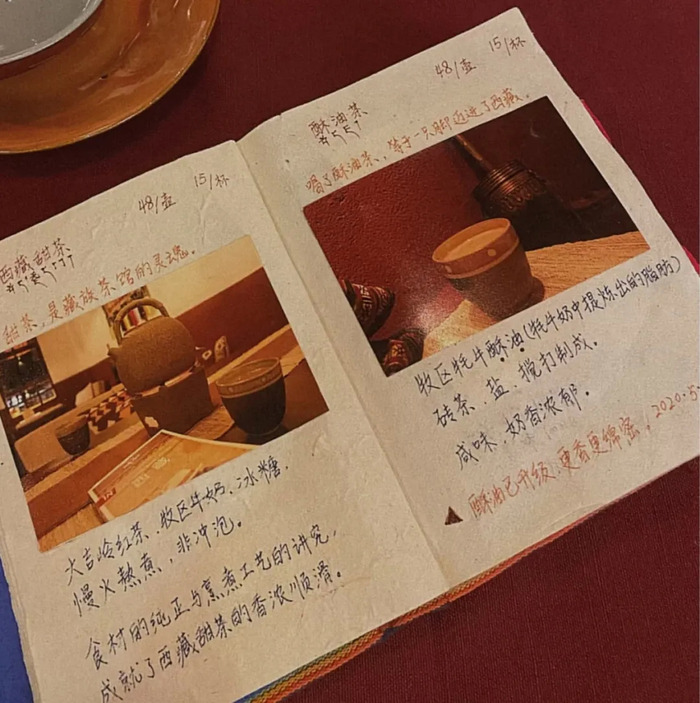 48/壶 15/杯
西藏甜茶
甜茶，是藏族茶馆的灵魂。
大吉岭红茶、牧区牛奶、冰糖，
慢火熬煮，非冲泡。
食材的纯正与烹煮工艺的讲究，
成就了西藏甜茶的香浓顺滑。
48/壶 15/杯
酥油茶
喝了酥油茶、等于一只脚迈进了西藏。
牧区牦牛酥油(牦牛奶中提炼出的脂肪)
砖茶、盐、搅打制成。
咸味、奶香浓郁。
酥油已升级，更香更绵密。2020.5